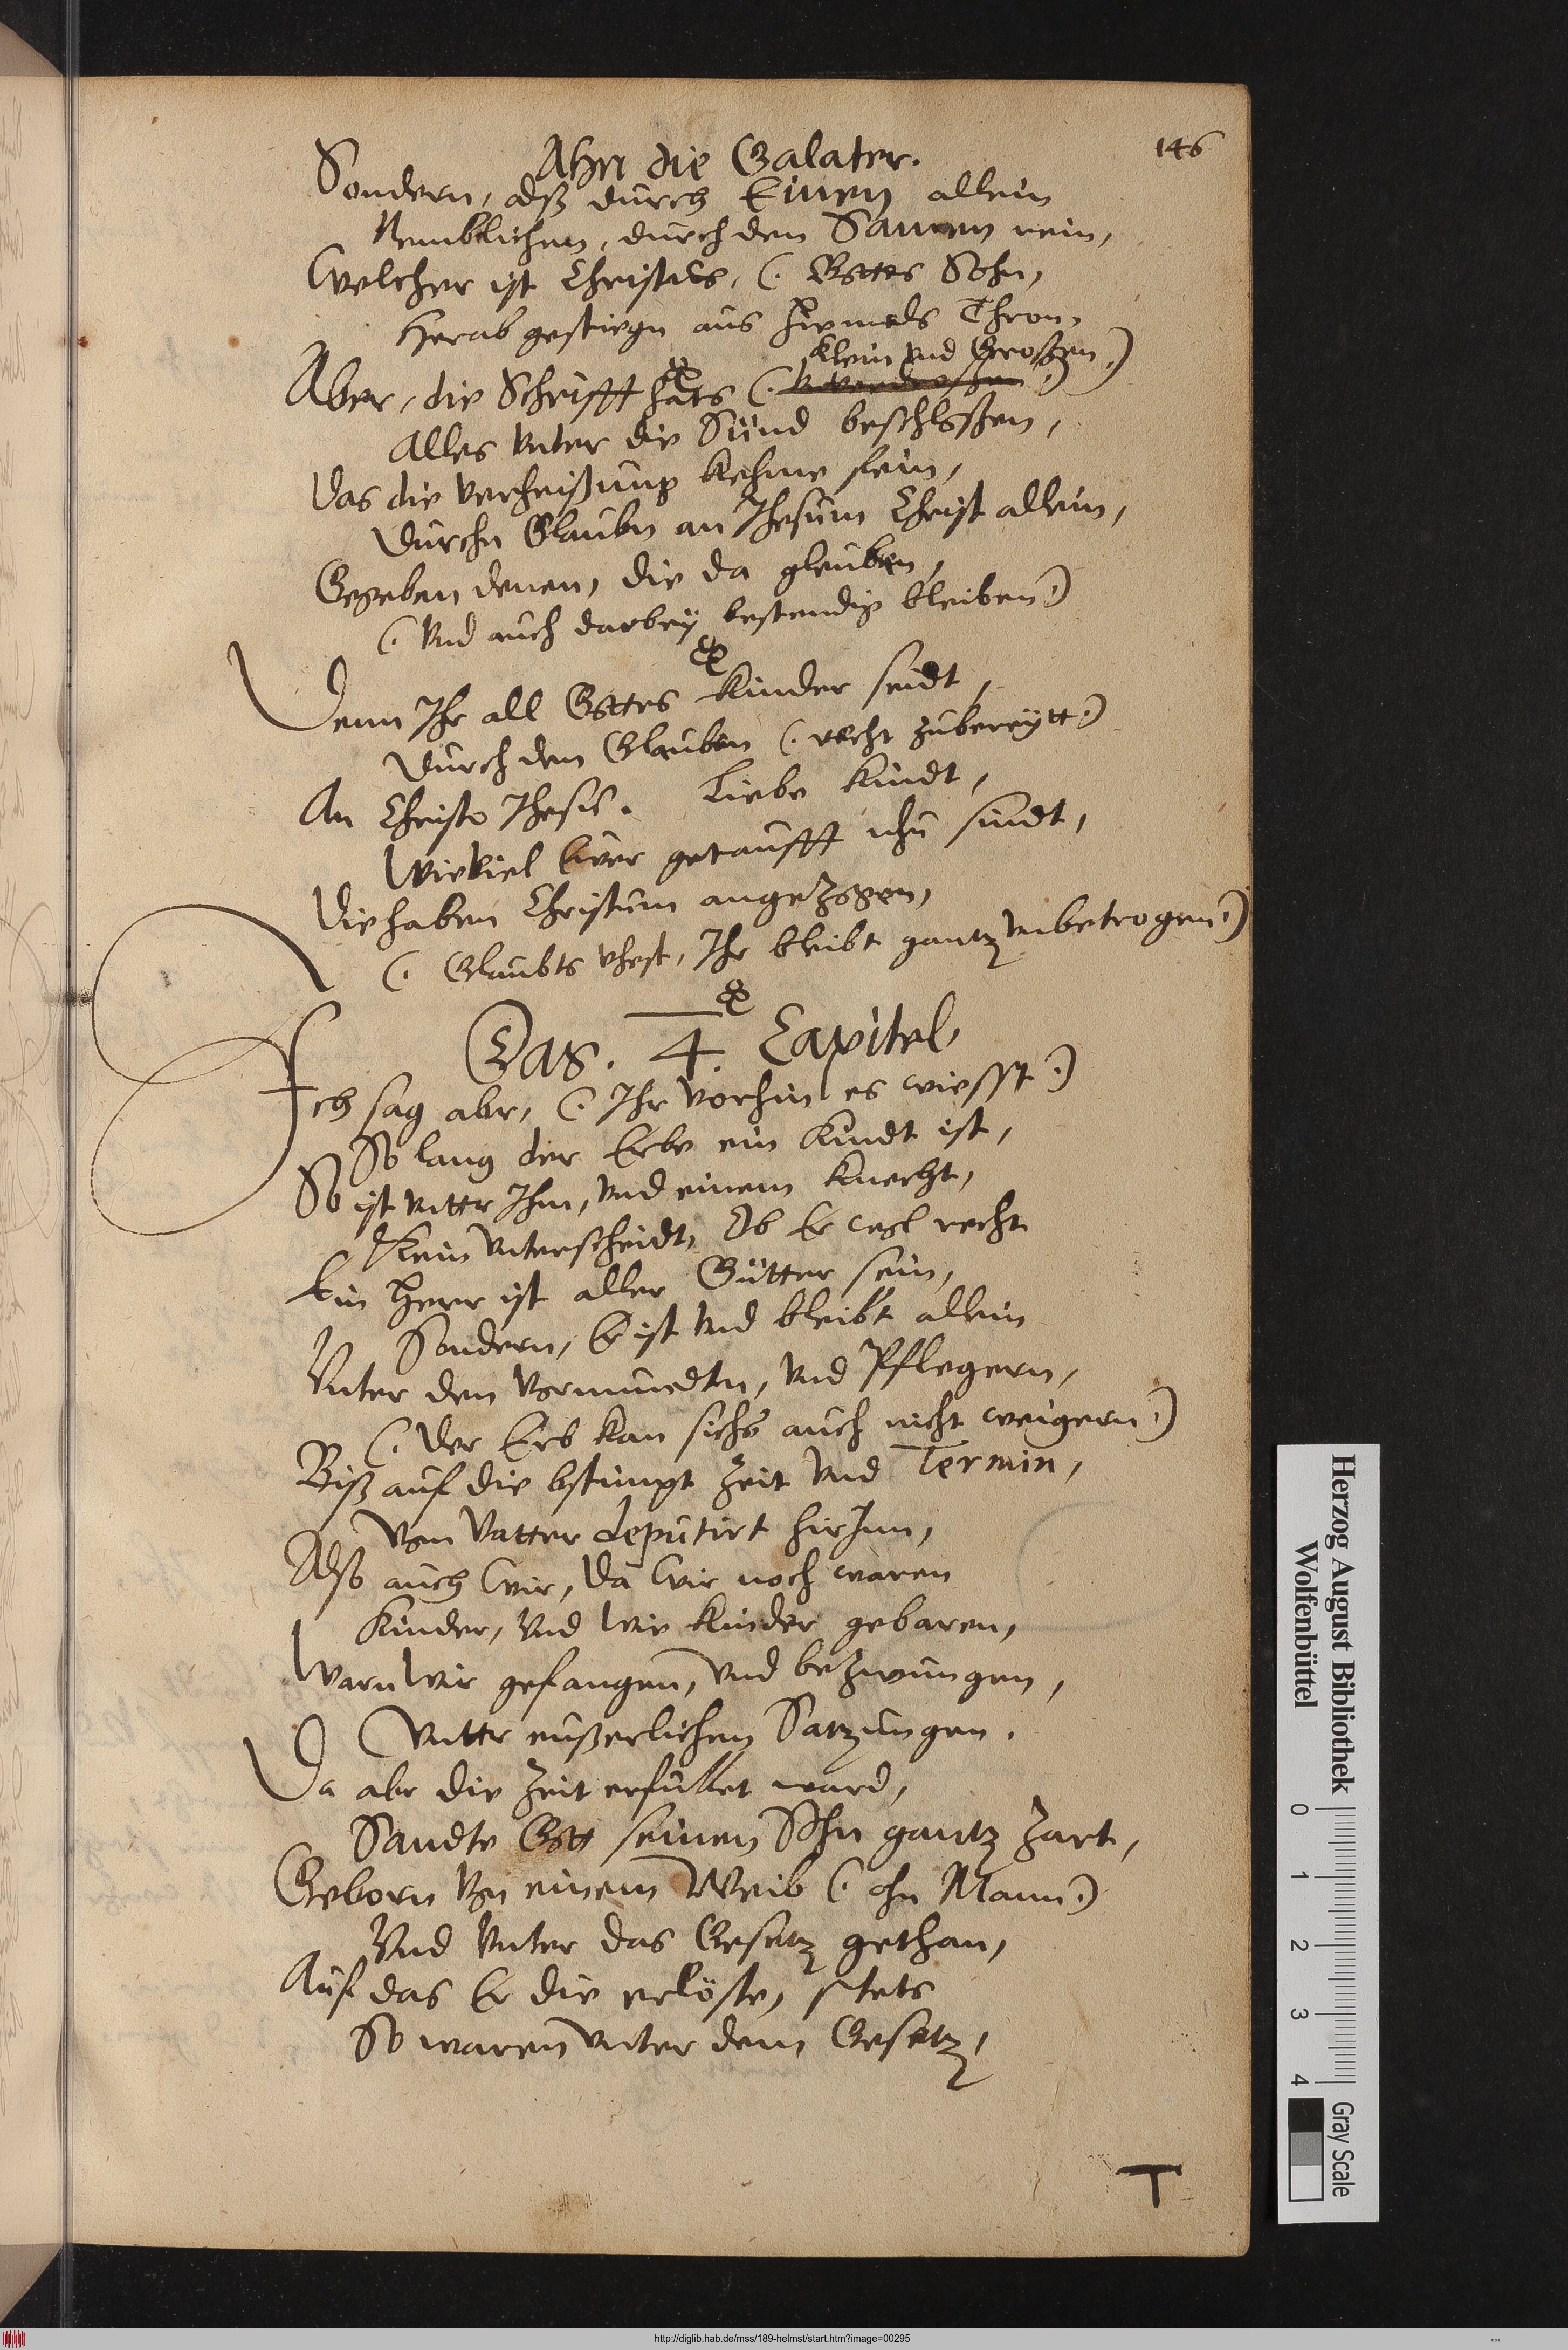 146
Ahn die Galater.
Sondern, alß durch Einen allein
Nemblichen, durch den Samen rein,
Welcher ist Christus, (. Gottes Sohn,
Herab gestiegn aus himmels Thron.
Klein vnd Großen.)
Aber, die Schrifft hats (. vnverdroßen .)
Alles vnter die Sünd beschloßen,
Das die verheißung kehme fein,
Durchn Glaubn an Jhesum Christ allein,
Gegeben denen, die da gleuben,
(. Vnd auch darbey bestendig bleiben.)
Denn Ihr all Gottes Kinder seidt,
Durch den Glauben (. recht zubereytt.)
An Christo Jhesu. Liebe Kindt,
Wieviel Ewer getaufft nhu sindt,
Die haben Christum angezogen,
(. Glaubts vhest, Ihr bleibt gantz vnbetrogen.)
Das. 4. Capitel.
Ich sag abr, (. Ihr vorhin es wisst.)
So lang der Erbe ein Kindt ist,
So ist vnttr Ihm, vnd einem Knecht,
Kein vnterscheidt, Ob Er wol recht
Ein Herr ist aller Gütter sein,
Sondern, Er ist vnd bleibt allein
Vnter den Vormundtn, vnd Pflegern,
(. Der Erb kan sichs auch nicht weigern.)
Biß auf die bstimpt Zeit vnd Termin,
Vom Vatter deputirt hirInn,
Also auch Wir, da Wir noch waren
Kinder, vnd wie Kinder gebaren,
Warn Wir gefangen, vnd bezwungen,
Vnttr eußerlichen Satzungen.
Da abr die Zeit erfüllet ward,
Sandte Gott seinen Sohn gantz zart,
Geborn Von einem Weib (. ohn Mann.)
Vnd vnter das Gesetz gethan,
Auf das Er die erlöste, stets
So waren vnter dem Gesetz,
T
Herzog August Bibliothek
Wolfenbüttel
0 1 2 3 4
Gray Scale
http://diglib.hab.de/mss/189-helmst/start.htm?image=00295